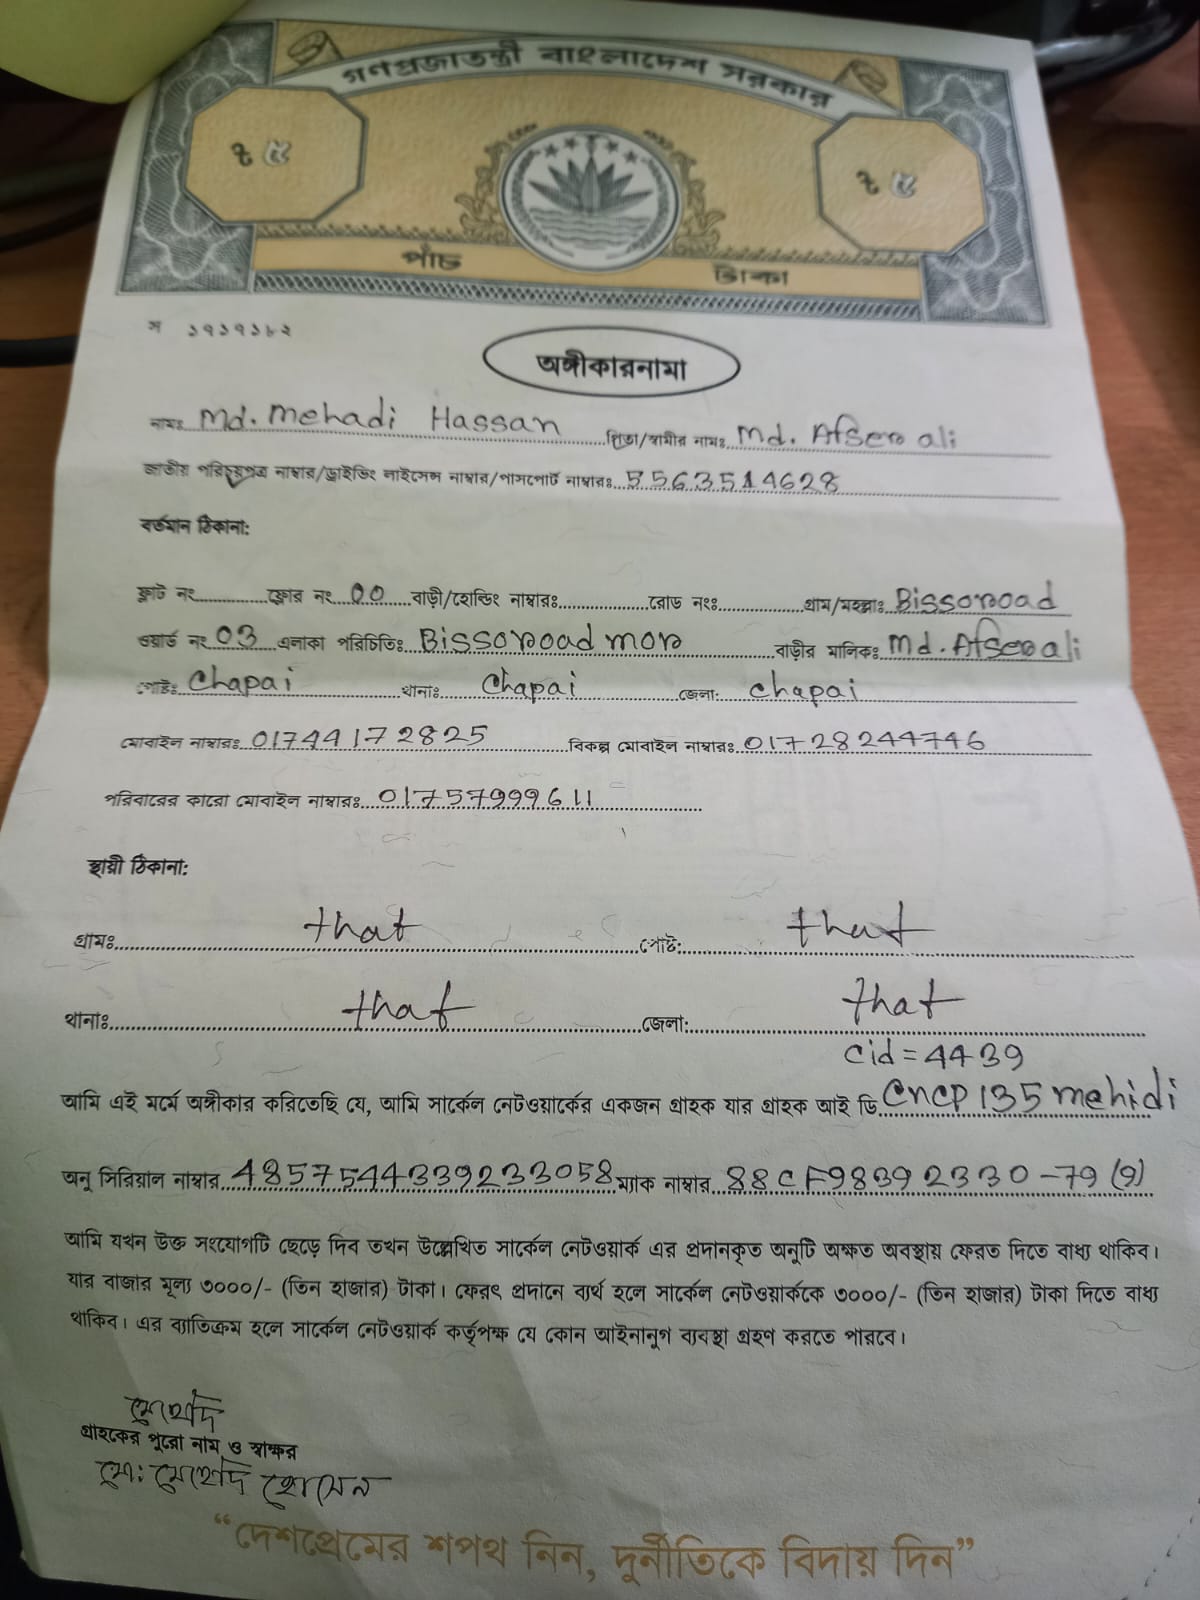 গণপ্রজাতন্ত্রী বাংলাদেশ সরকার
ট ৫ ট ৫
পাঁচ টাকা
স ১৭১৭১৮২
অঙ্গীকারনামা
নামঃ Md. Mehadi Hassan পিতা/স্বামীর নামঃ Md. Afser ali
জাতীয় পরিচয়পত্র নাম্বার/ড্রাইভিং লাইসেন্স নাম্বার/পাসপোর্ট নাম্বারঃ 5563514628
বর্তমান ঠিকানা:
ফ্লাট নং ফ্লোর নং 00 বাড়ী/হোল্ডিং নাম্বারঃ রোড নংঃ গ্রাম/মহল্লাঃ Bissoroad
ওয়ার্ড নং 03 এলাকা পরিচিতিঃ Bissoroad mor বাড়ীর মালিকঃ Md. Afser ali
পোষ্টঃ Chapai থানাঃ Chapai জেলা: Chapai
মোবাইল নাম্বারঃ 01744172825 বিকল্প মোবাইল নাম্বারঃ 01728244746
পরিবারের কারো মোবাইল নাম্বারঃ 01757999611
স্থায়ী ঠিকানা:
গ্রামঃ that পোষ্ট: that
থানাঃ that জেলা: that
cid = 4439
আমি এই মর্মে অঙ্গীকার করিতেছি যে, আমি সার্কেল নেটওয়ার্কের একজন গ্রাহক যার গ্রাহক আই ডি CNCP135mehidi
অনু সিরিয়াল নাম্বার 4857544339233058 ম্যাক নাম্বার 88CF98392330-79 (9)
আমি যখন উক্ত সংযোগটি ছেড়ে দিব তখন উল্লেখিত সার্কেল নেটওয়ার্ক এর প্রদানকৃত অনুটি অক্ষত অবস্থায় ফেরত দিতে বাধ্য থাকিব।
যার বাজার মূল্য ৩০০০/- (তিন হাজার) টাকা। ফেরৎ প্রদানে ব্যর্থ হলে সার্কেল নেটওয়ার্ককে ৩০০০/- (তিন হাজার) টাকা দিতে বাধ্য
থাকিব। এর ব্যাতিক্রম হলে সার্কেল নেটওয়ার্ক কর্তৃপক্ষ যে কোন আইনানুগ ব্যবস্থা গ্রহণ করতে পারবে।
মেহেদি
গ্রাহকের পুরো নাম ও স্বাক্ষর
মো: মেহেদি হোসেন
“দেশপ্রেমের শপথ নিন, দুর্নীতিকে বিদায় দিন”